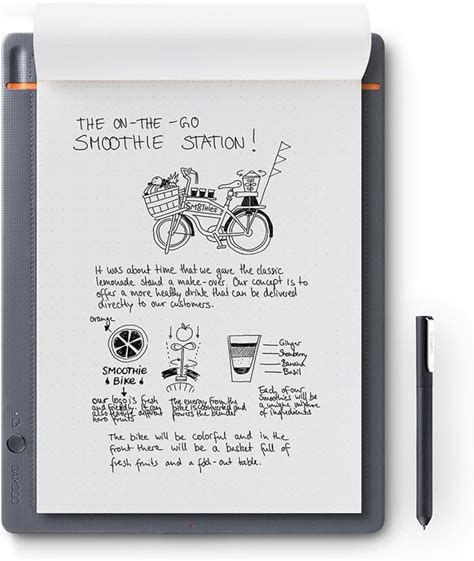 THE ON-THE-GO
SMOOTHIE STATION!
SMOOTHIES
It was about time that we gave the classic
lemonade stand a make-over. Our concept is to
offer a more healthy drink that can be delivered
directly to our customers.
orange
SMOOTHIE
BIKE
our logo is fresh
and friendly. it can
also feature different
hero fruits
The energy from the
bike is converted and
powers the blender
Ginger
Strawberry
Banana
Basil
Each of our
Smoothies will be
a unique mixture
of ingredients
The bike will be colorful and in the
front there will be a basket full of
fresh fruits and a fold-out table.